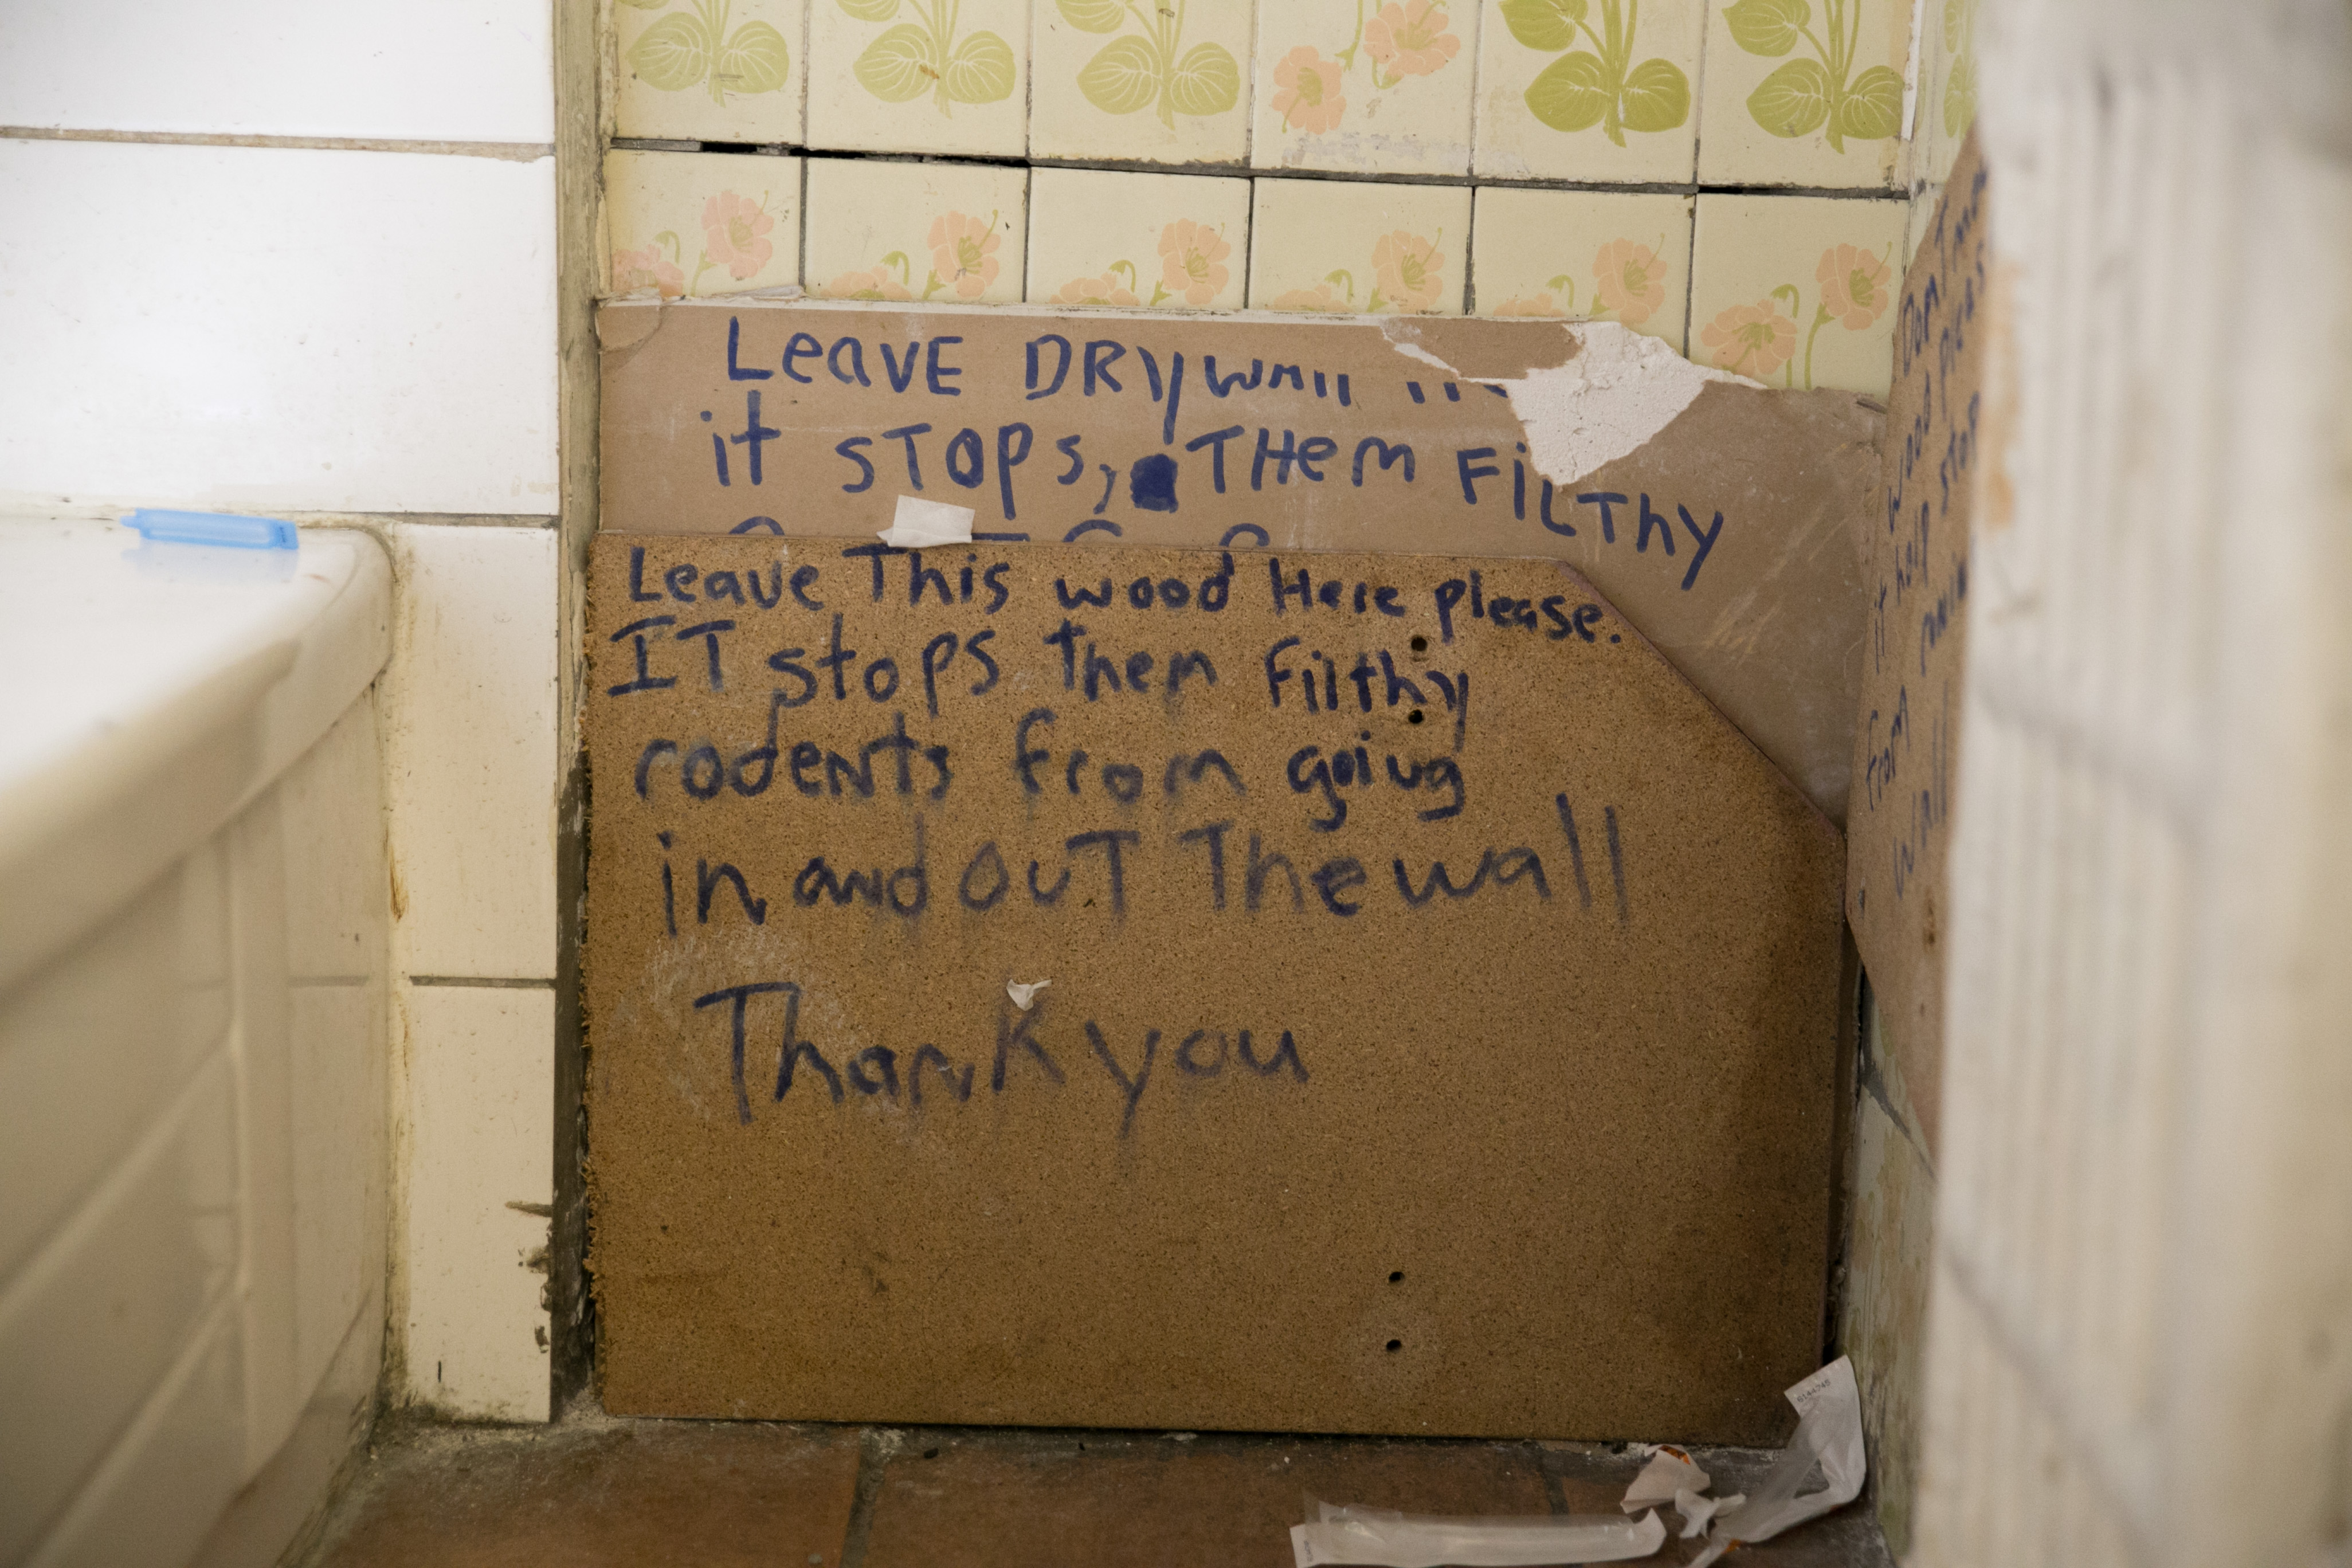 LeAVE DRywall
it STOPS, THem FiLThy
Leave This wood Here please.
IT stops them filthy
rodents from going
in and OuT The wall
Thank you
Don'T
wood pieces
it help STOP
from
wall